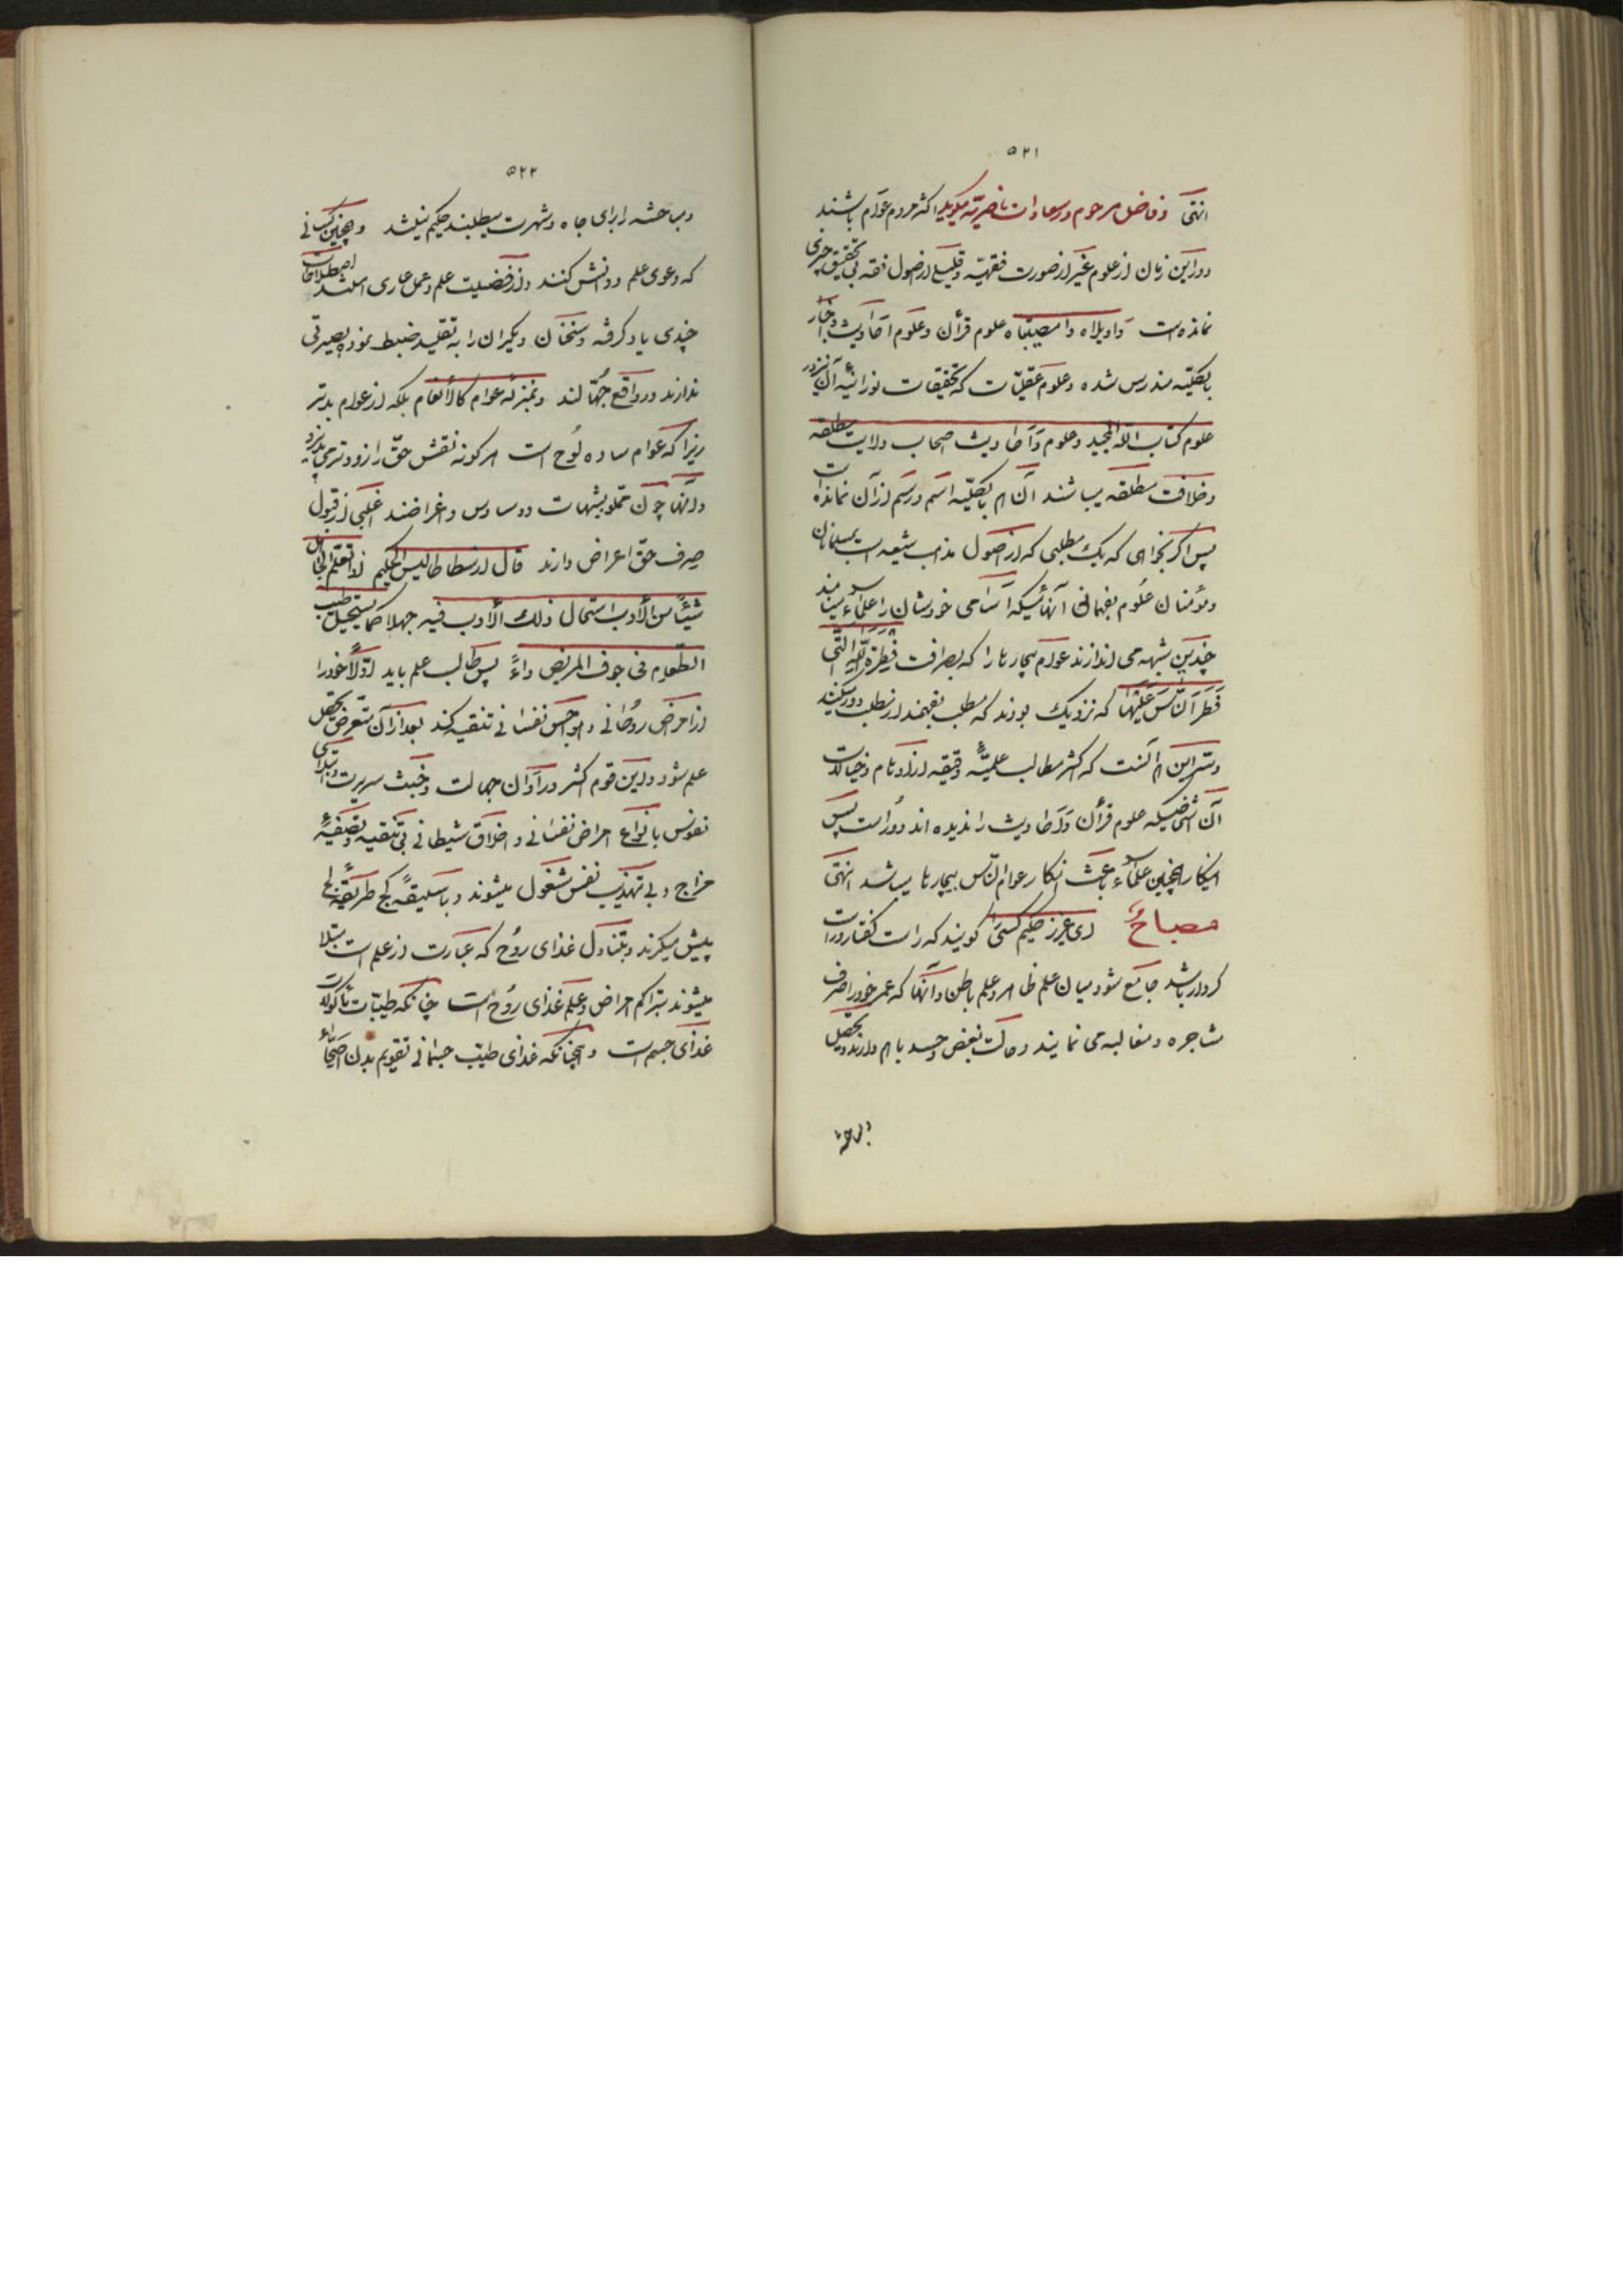 ۵۲۱
انتهی و فاضل مرحوم در سعادات ناصریّه میگوید اکثر مردم عوام باشند
و در این زمان از علوم غیر از صورت فقهیّه و قلیلی از اصول فقه بی تحقیق چیزی
نمانده است واویلاه وا مصیبتاه علوم قرآن و علوم احادیث و اخبار
بالکلّیه مندرس شده و علوم عقلیّات که تحقیقات نورانیّه آن نیز در
علوم کتاب اللّه المجید و علوم و احادیث اصحاب ولایت مطلقه
و خلافت مطلقه میباشند آن هم بالکلّیه اسم و رسم از آن نمانده است
پس اگر بخواهی که یک مطلبی که از اصول مذهب شیعه است بمسلمانان
و مؤمنان عُلوم بفهمانی آنهائیکه اسامی خودشان را علماء مینامند
چندین شبهه می اندازند عوام بیچارها را که بصرافت فِطْرَةَ اللّهِ الَّتی
فَطَرَ النّاسَ عَلَیْهٰا که نزدیک بودند که مطلب بفهمند از مطلب دور میکنند
و سّر این هم آنست که اکثر مطالب علمیّهٔ دقیقه از اوهام و خیالات
آن اشخاصیکه علوم قرآن و احادیث را ندیده اند دور است پس
انکار اینچنین علماء باعث انکار عوام النّاس بیچارها میباشد انتهی
مصباحٌ ای عزیز حکیم کسی را گویند که راست گفتار و راست
کردار باشد جامع شود میان علم ظاهر و علم باطن و آنها که عمر خود را صرف
مشاجره و مغالبه می نمایند و حالت بغض و حسد با هم دارند و تحصیل
و مباحثه
۵۲۲
و مباحثه را برای جاه و شهرت میطلبند حکیم نیلشد و همچنین کسانی
که دعوی علم و دانش کنند و از فضیلت علم و عمل عاری اصطلاحات
چندی یاد گرفته و سخنان دیگران را به تقلید ضبط نموده بصیرتی
ندارند و در واقع جُهّالند و بمنزلهٔ عوام کالأنعام بلکه از عوام بدتر
زیرا که عوام ساده لوح است هر گونه نقش حقّ را زودتر می پذیرد
و اینها چون مملو بشبهات و وساوس و اغراضند اغلبی از قبول
صِرف حقّ اعراض دارند قال ارسطاطالیس الحکیم اذا تعلّم الجاهل
شیئاً من الأدب استحال ذلک الأدب فیه جهلا کما یستحیل طیب
الطّعام فی جوف المریض داءً پس طالب علم باید اوّلاً خود را
از امراض روحانی و هواجس نفسانی تنقیه کند بعد از آن متعرض تحصیل
علم شود و این قوم اکثر در اوان جهالت و خبث سریرت و ابتلای
نفوس بانواع امراض نفسانی و اخلاق شیطانی بی تنقیه و تصفیهٔ
مزاج و بی تهذیب نفس مشغول میشوند و با سلیقهٔ کج طریقهٔ لج
پیش میگیرند و بتناول غذای روُح که عبارت از علم است مبتلا
میشوند بتراکم امراض و علم غذای روُح است چنانکه طیّبات مأکولات
غذای جسم است و همچنانکه غذای طیّب جسمانی تقویم بدن اصحّاء